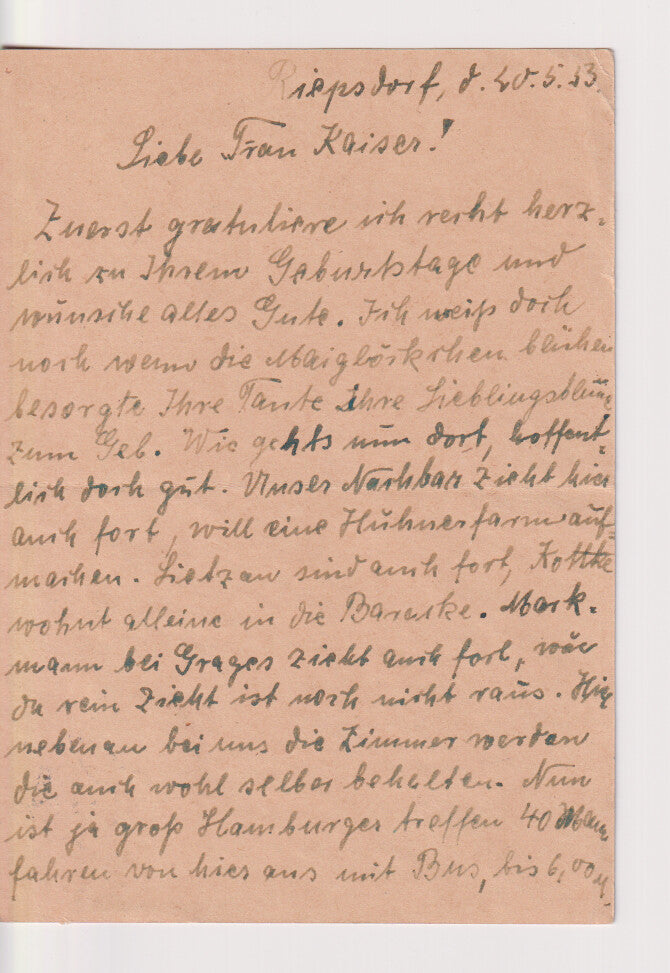 Riepsdorf, d. 20.5.53.
Liebe Frau Kaiser!
Zuerst gratuliere ich recht herz-
lich zu Ihrem Geburtstage und
wünsche alles Gute. Ich weiß doch
noch wenn die Maiglöckchen blühen
besorgte Ihre Tante ihre Lieblingsblum
zum Geb. Wie gehts nun dort, hoffent-
lich doch gut. Unser Nachbar zieht hier
auch fort, will eine Hühnerfarm auf-
machen. Lietzau sind auch fort, Kottke
wohnt alleine in die Baracke. Mark-
mann bei Grages zieht auch fort, wär
da rein zieht ist noch nicht raus. Hir
nebenan bei uns die Zimmer werden
die auch wohl selber behalten. Nun
ist ja groß Hamburger treffen 40 Mann
fahren von hier aus mit Bus, bis 6,00 M.